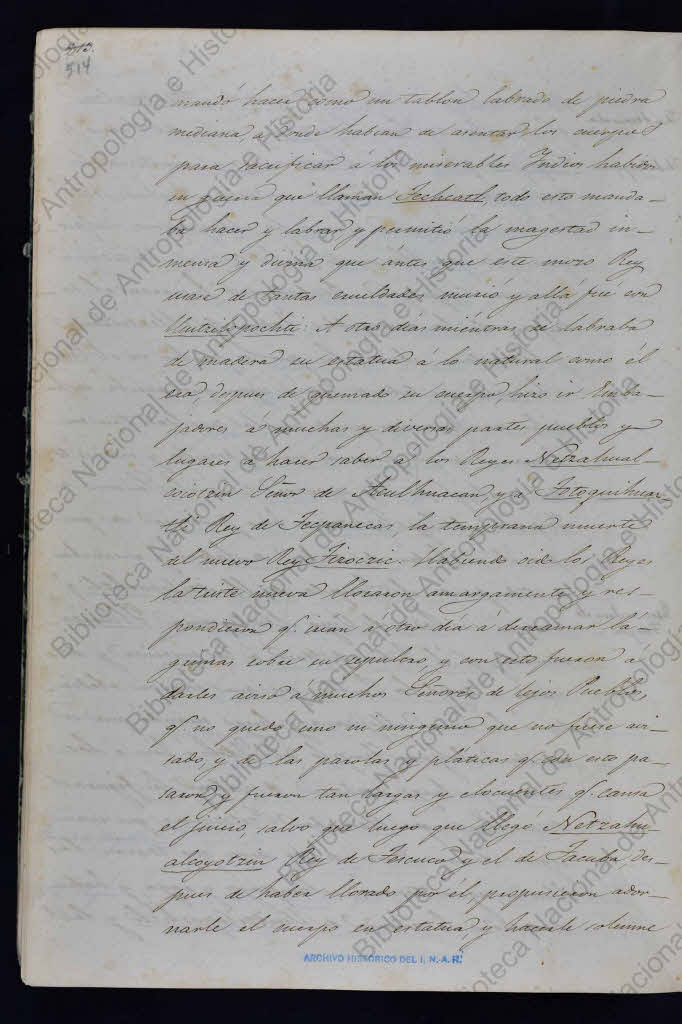 513.
514
mandó hacer como un tablon labrado de piedra
mediana, a donde habian de asentar los cuerpos
para sacrificar á los miserables Indios habidos
en guerra que llaman Techcatl, todo esto manda-
ba hacer y labrar y permitió la magestad in-
mensa y divina que ántes que este mozo Rey
usase de tantas crueldades murió y allá fué con
Huitzilopochti: A otros dias miéntras se labraba
de madera su estatua á lo natural como él
era, despues de quemado su cuerpo, hizo ir Emba-
jadores á muchas y diversas partes pueblos y
lugares á hacer saber á los Reyes Netzahual-
coiotzin Señor de Aculhuacan, y á Totoquihuaz-
tli Rey de Tecpanecas, la temprana muerte
del nuevo Rey Tizoczic. Habiendo oido los Reyes
la triste nueva lloraron amargamente y res-
pondieron q.ͤ irian á otro dia á derramar lá-
grimas sobre su sepulcro, y con esto fueron á
darles aviso á muchos Señores de lejos Pueblos,
q.ͤ no quedó uno ni ninguno que no fuese avi-
sado, y de las parolas y pláticas q.ͤ con esto pa-
saron, y fueron tan largas y elocuentes q.ͤ cansa
el juicio, salvo que luego que llegó Netzahu-
alcoyotzin Rey de Tescuco y el de Tacuba des-
pues de haber llorado por él, propusieron ador-
narle el cuerpo en estatua y hacerle solemne
ARCHIVO HISTÓRICO DEL I. N. A. H.
Biblioteca Nacional de Antropología e Historia